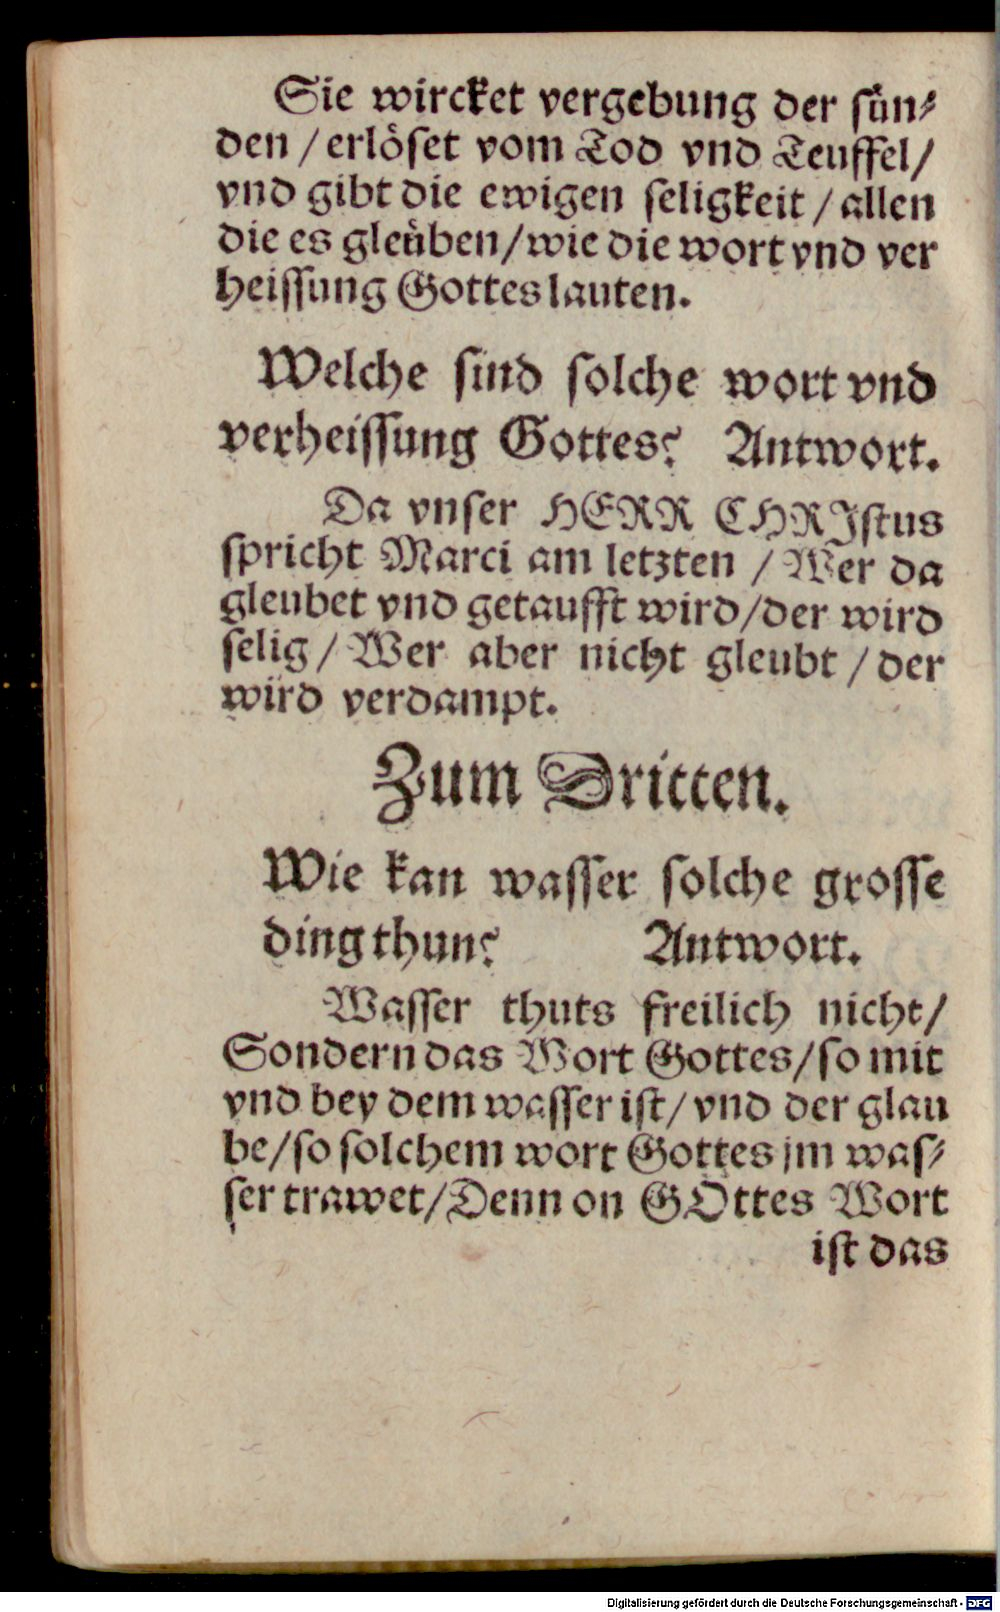 Sie wircket vergebung der sün⸗
den / erlöset vom Tod vnd Teuffel /
vnd gibt die ewigen seligkeit / allen
die es gleüben / wie die wort vnd ver
heissung Gottes lauten.
Welche sind solche wort vnd
verheissung Gottes? Antwort.
Da vnser HERR CHRIstus
spricht Marci am letzten / Wer da
gleubet vnd getaufft wird / der wird
selig / Wer aber nicht gleubt / der
wird verdampt.
Zum Dritten.
Wie kan wasser solche grosse
ding thun? Antwort.
Wasser thuts freilich nicht /
Sondern das Wort Gottes / so mit
vnd bey dem wasser ist / vnd der glau
be / so solchem wort Gottes jm was⸗
ser trawet / Denn on GOttes Wort
ist das
Digitalisierung gefördert durch die Deutsche Forschungsgemeinschaft - DFG